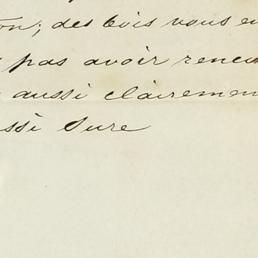 on; des bois vous en
pas avoir rencon
aussi clairemen
ssi sure